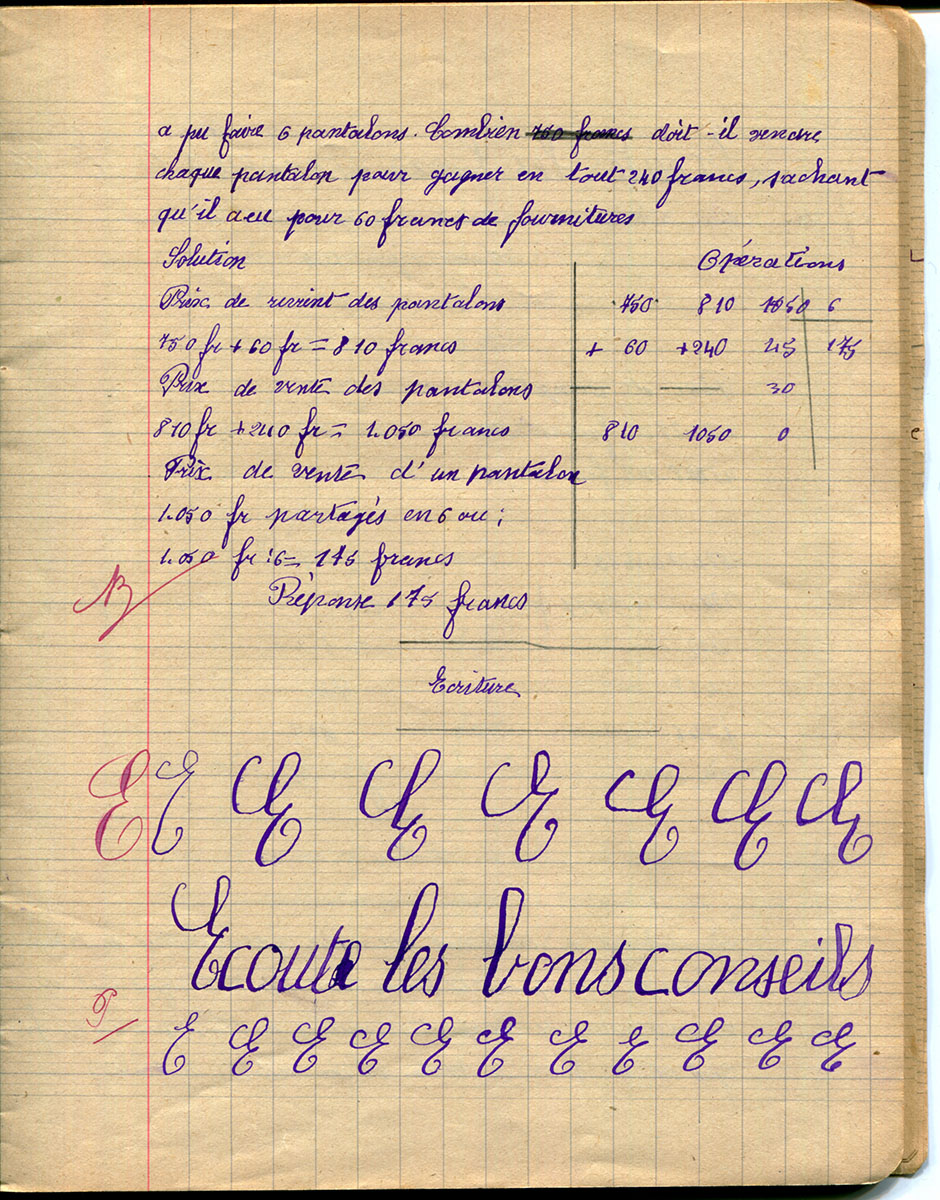 a pu faire 6 pantalons. Combien 750 francs doit-il vendre
chaque pantalon pour gagner en tout 240 francs, sachant
qu'il a eu pour 60 francs de fournitures
Solution Opérations
Prix de revient des pantalons 750 810 1050 6
750 fr + 60 fr = 810 francs + 60 +240 45 175
Prix de vente des pantalons 30
810 fr + 240 fr = 1.050 francs 810 1050 0
Prix de vente d'un pantalon
1.050 fr partagés en 6 ou ;
1.050 fr : 6 = 175 francs
B
Réponse 175 francs
Ecriture
E E E E E E E E
Ecoute les bons conseils
E E E E E E E E E E E